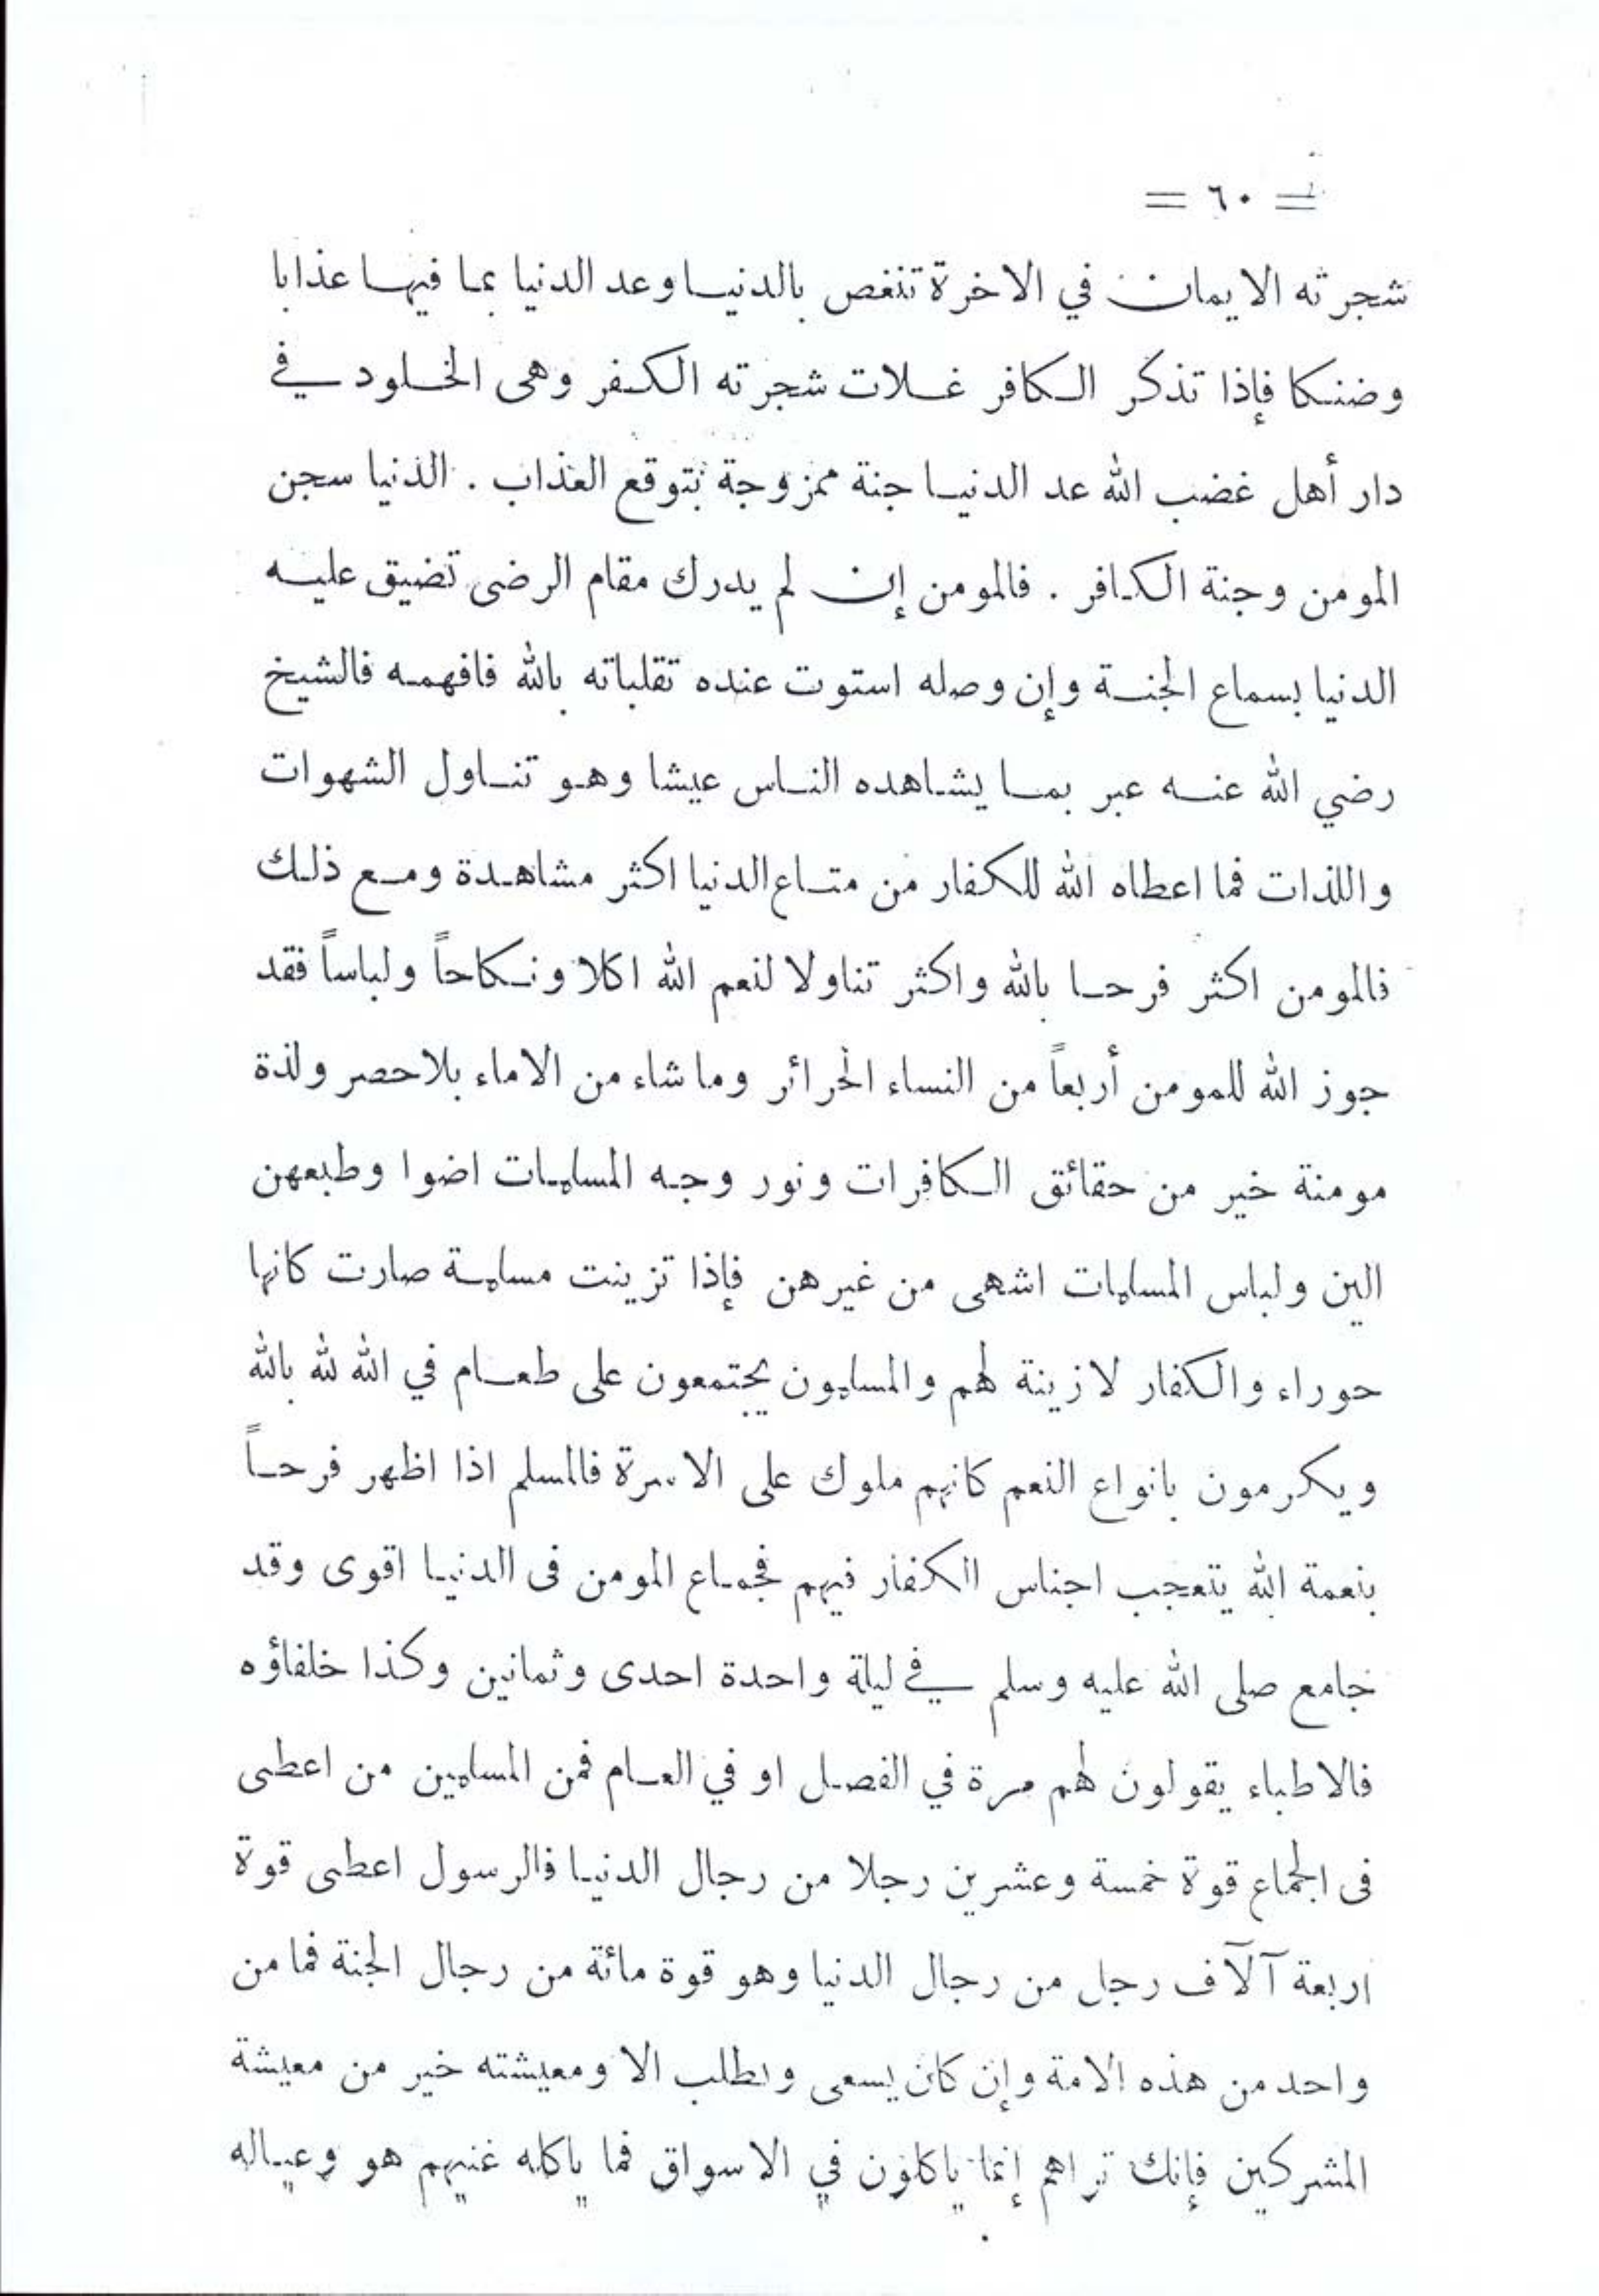 = ٦٠ =
شجرته الايمان في الاخرة تنغص بالدنيا وعد الدنيا بما فيها عذابا
وضنكا فإذا تذكر الكافر غلات شجرته الكفر وهى الخلود في
دار أهل غضب الله عد الدنيا جنة ممزوجة بتوقع العذاب . الدنيا سجن
المومن وجنة الكافر . فالمومن إن لم يدرك مقام الرضى تضيق عليه
الدنيا بسماع الجنة وإن وصله استوت عنده تقلباته بالله فافهمه فالشيخ
رضي الله عنه عبر بما يشاهده الناس عيشا وهو تناول الشهوات
واللذات فما اعطاه الله للكفار من متاع الدنيا اكثر مشاهدة ومع ذلك
فالمومن اكثر فرحا بالله واكثر تناولا لنعم الله اكلا ونكاحاً ولباساً فقد
جوز الله للمومن أربعاً من النساء الحرائر وما شاء من الاماء بلا حصر ولذة
مومنة خير من حقائق الكافرات ونور وجه المسلمات اضوا وطبعهن
الين ولباس المسلمات اشهى من غيرهن فإذا تزينت مسلمة صارت كانها
حوراء والكفار لا زينة لهم والمسلمون يجتمعون على طعام في الله لله بالله
ويكرمون بانواع النعم كانهم ملوك على الاسرة فالمسلم اذا اظهر فرحاً
بنعمة الله يتعجب اجناس الكفار فيهم فجماع المومن فى الدنيا اقوى وقد
جامع صلى الله عليه وسلم في ليلة واحدة احدى وثمانين وكذا خلفاؤه
فالاطباء يقولون لهم مرة في الفصل او في العام فمن المسلمين من اعطى
فى الجماع قوة خمسة وعشرين رجلا من رجال الدنيا فالرسول اعطى قوة
اربعة آلآف رجل من رجال الدنيا وهو قوة مائة من رجال الجنة فما من
واحد من هذه الامة وإن كان يسعى ويطلب الا ومعيشته خير من معيشة
المشركين فإنك تراهم إنما ياكلون في الاسواق فما ياكله غنيهم هو وعياله